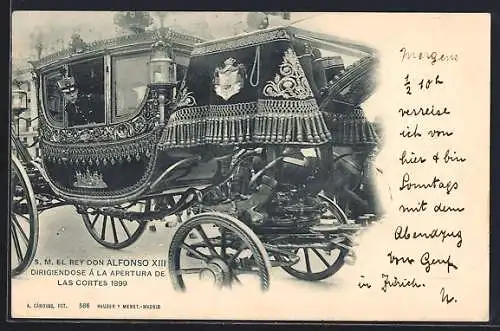 Morgens
½ 10h
verreise
ich von
hier & bin
Sonntags
mit dem
Abendzug
von Genf
in Zürich.
S. M. EL REY DON ALFONSO XIII
DIRIGIENDOSE Á LA APERTURA DE
LAS CORTES 1899
A. CÁNOVAS, FOT. 586 HAUSER Y MENET.-MADRID